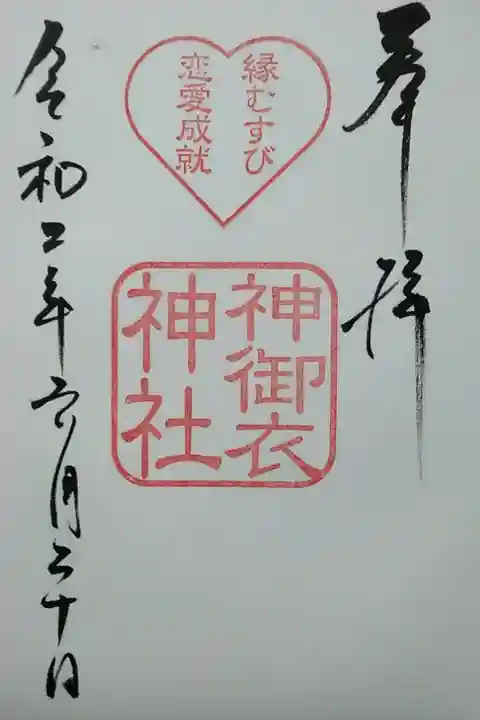 奉拝
縁むすび
恋愛成就
神御衣
神社
令和二年六月二十日